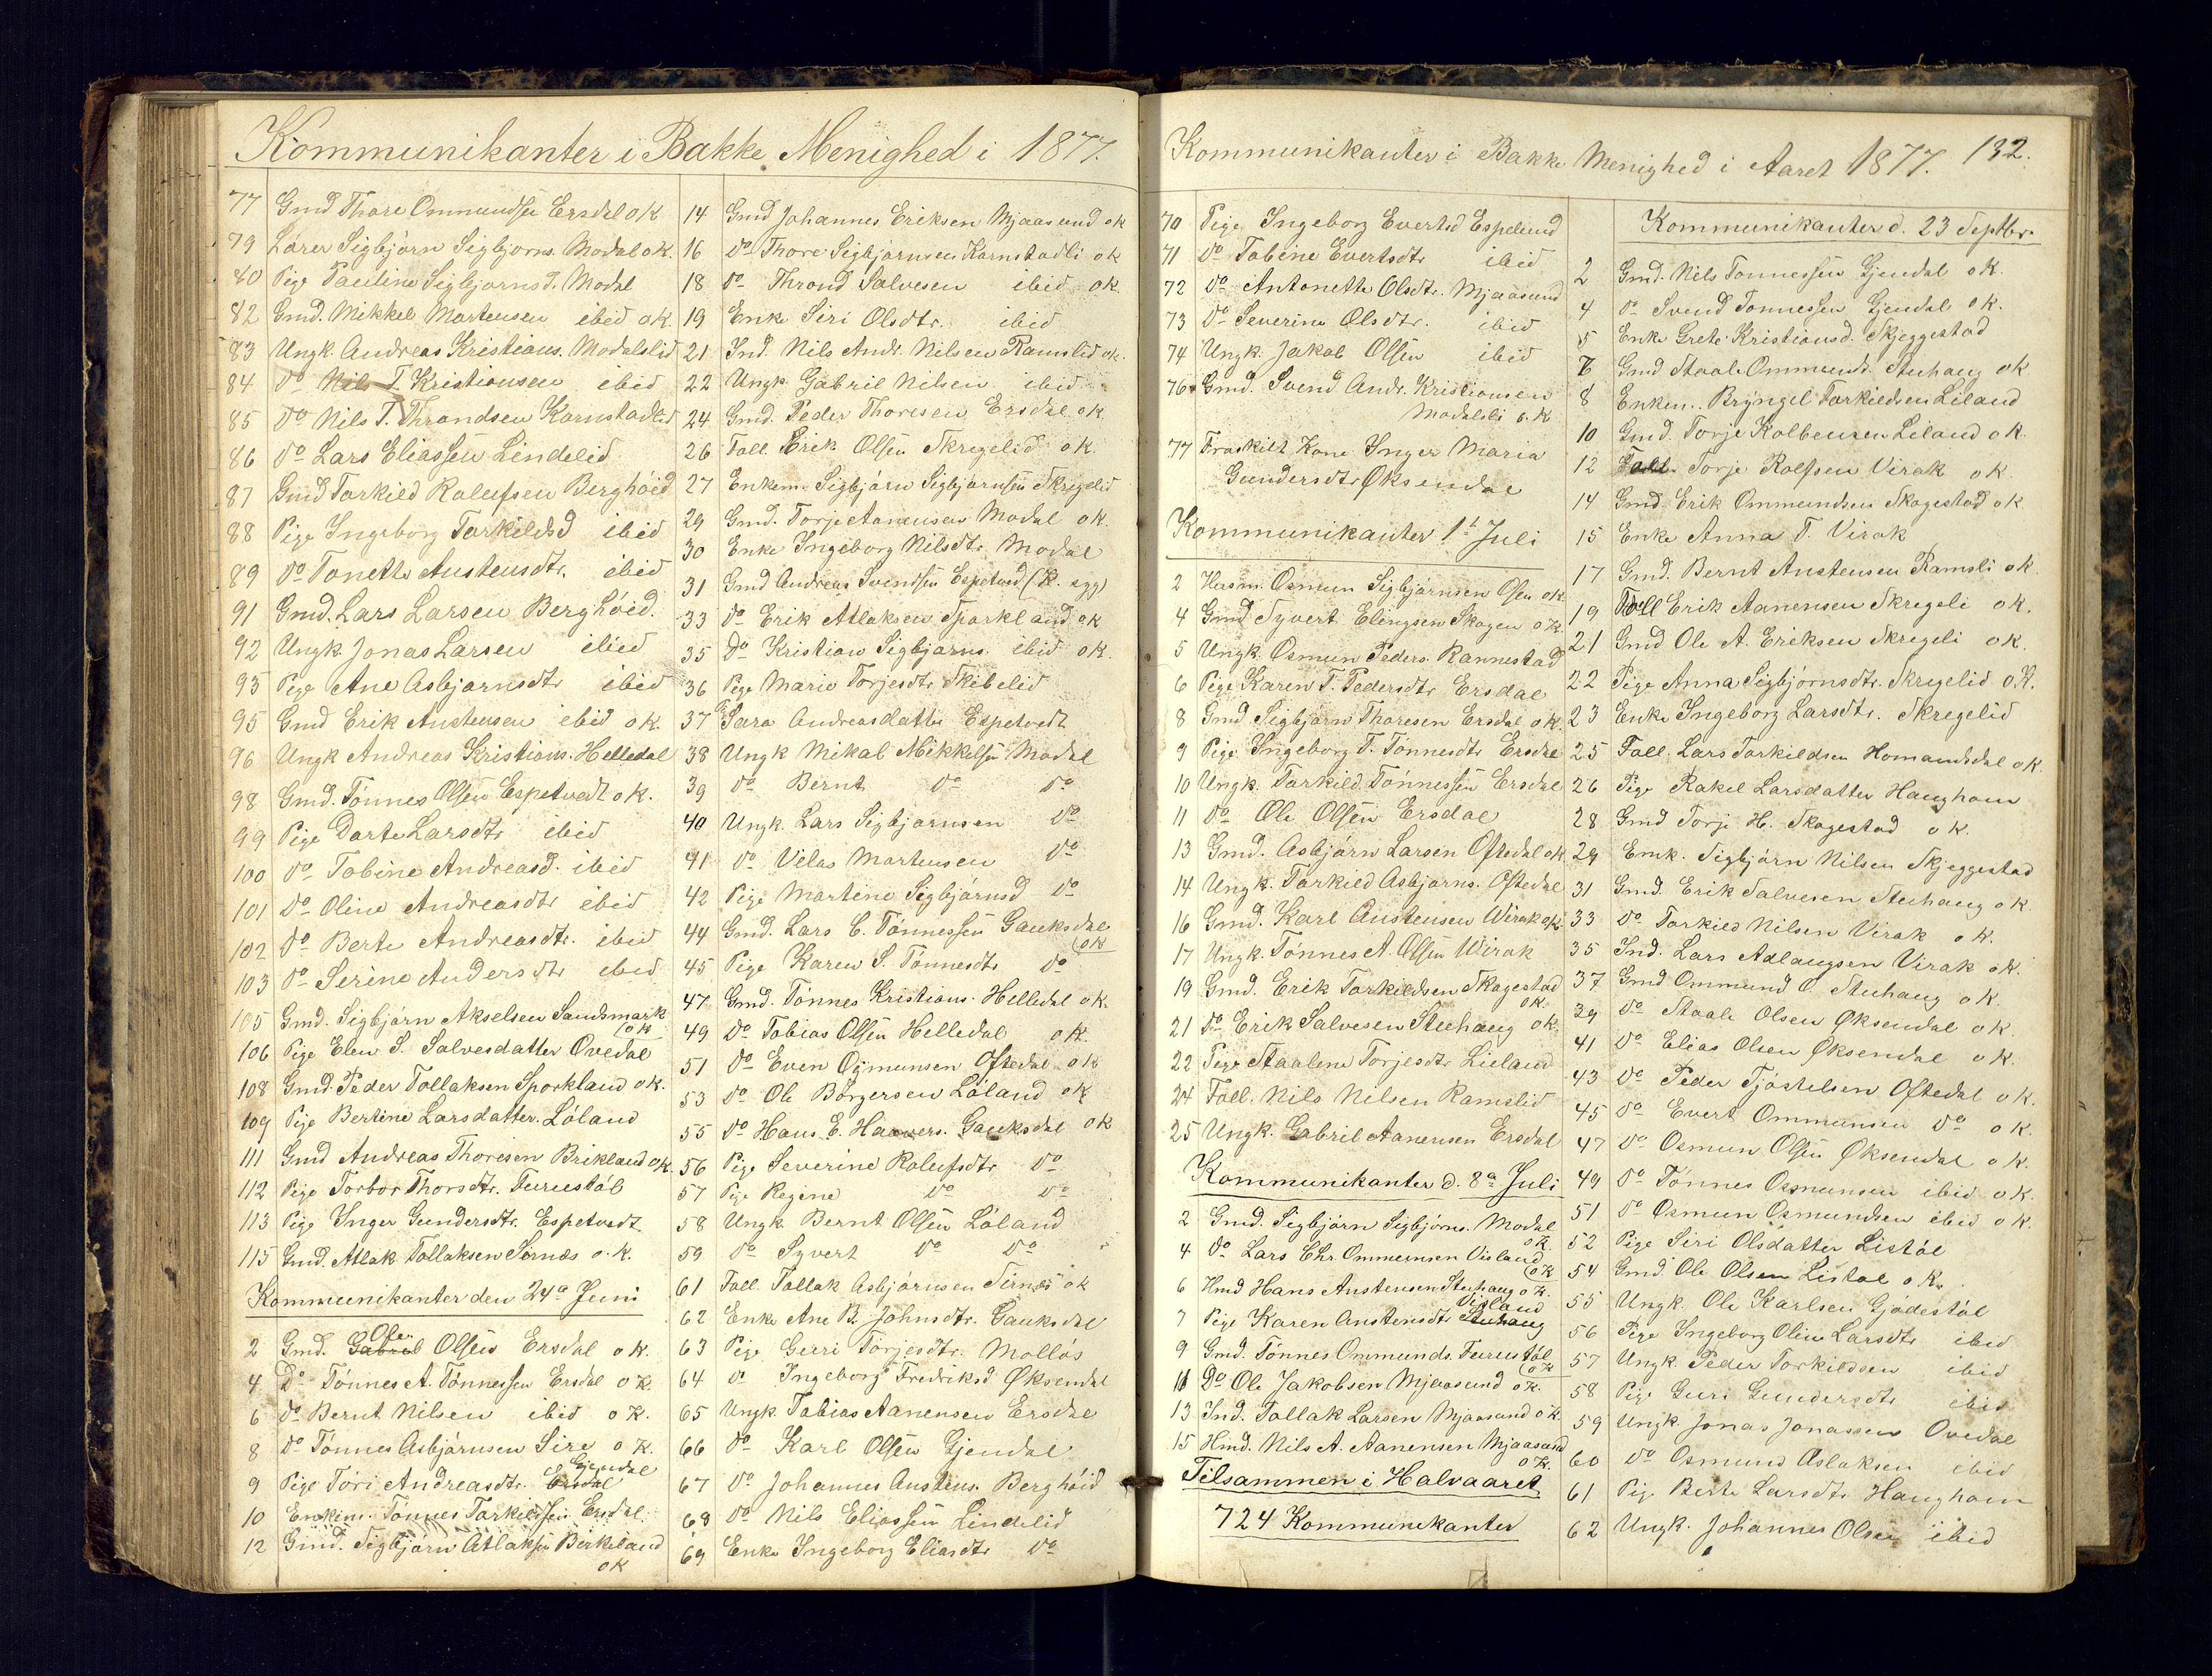 Kommunikanter i Bakke Menighed i 1877.
77 Gmd Thore Ommundsen Ersdal o K
79 Lærer Sigbjörn Sigbjørns. Modal o K.
80 Pige Pauline Sigbjørnsd. Modal
82 Gmd. Mikkel Mortensen ibid o K.
83 Ungk. Andreas Kristians. Modalslid
84 do Nils T. Kristiansen ibid
85 do Nils T. Throndsen Karnstadlid
86 do Lars Eliassen Lindelid
87 Gmd Tarkild Raleifsen Berghöid
88 Pige Ingeborg Tarkildsd ibid
89 do Tonette Austensdtr. ibid
91 Gmd. Lars Larsen Berghöid.
92 Ungk. Jonas Larsen ibid
93 Pige Ane Asbjørnsdtr ibid
95 Gmd Erik Austensen ibid o K.
96 Ungk Andreas Kristians. Helledal
98 Gmd. Tönnes Olsen Espetvedt o K.
99 Pige Darte Larsdtr ibid
100 do Tobine Andreasd. ibid
101 do Oline Andreasdtr ibid
102 do Berte Andreasdtr. ibid
103 do Serine Andersdtr ibid
105 Gmd. Sigbjörn Akselsen Sandsmark
o K
106 Pige Elen S. Salvesdatter Ovedal
108 Gmd. Peder Tollaksen Sporkland o K.
109 Pige Bertine Larsdatter. Löland
111 Gmd Andreas Thoresen Brikland o K.
112 Pige Torbor Thorsdtr. Furustöl
113 Pige Inger Gundersdtr. Espetvedt
115 Gmd. Atlak Tollaksen Sernæs o. K.
Kommunikanter den 24a Juni
2 Gmd. Gabriel Ole Olsen Ersdal o K.
4 Do Tönnes A. Tönnessen Ersdal o K.
6 do Bernt Nilsen ibid o K.
8 do Tönnes Asbjörnsen Sire o K.
9 Pige Töri Andreasdtr. Ersdal Gjendal
10 Enkem. Tönnes Tarkildsen Ersdal
12 Gmd. Sigbjörn Atlaksen Birkeland
o K
14 Gmd Johannes Eriksen Mjaasund o K
16 do Thore Sigbjørnsen Karnstadli o K
18 do Thrond Salvesen ibid o K.
19 Enke Siri Olsdtr. ibid
21 Ind. Nils Andr. Nilsen Ramslid o K.
22 Ungk. Gabril Nilsen ibid
24 Gmd. Peder Thoresen Ersdal o K
26 Foll. Erik Olsen Skregelid o K.
27 Enkem. Sigbjörn Sigbjørnsen Skregelid
29 Gmd. Torje Aanensen Modal o K.
30 Enke Ingeborg Nilsdtr Modal
31 Gmd Andreas Svendsen Espetved (K. syg)
33 do Erik Atlaksen Sparkland o K
35 Do Kristian Sigbjørns. ibid o K.
36 Pige Marie Torjesdtr. Skibelid
37 Sara Andreasdatter Espetvedt
38 Ungk Mikal Mikkelsen Modal
39 do Bernt do do
40 Ungk. Lars Sigbjørnsen do
41 do Velas Mortensen do
42 Pige Martine Sigbjörnsd do
44 Gmd. Lars C. Tönnessen Gauksdal
o K
45 Pige Karen S. Tönnesdtr do
47 Gmd. Tönnes Kristians. Helledal o K
49 Do Tobias Olsen Helledal o K.
51 Do Even Ogmunsen Oftedal o K
53 do Ole Börgersen Löland o K
55 do Hans E. Haavers. Gauksdal o K
56 Pige Severine Raleifsdtr do
57 Pige Regine do do
58 Ungk Bernt Olsen Löland
59 do Syvert do do
61 Foll. Tollak Asbjörnsen Sirnæs o K
62 Enke Ane B. Johnsdtr. Gauksdal
63 Pige Gerri Torjesdtr. Mollös
64 do Ingeborg Fredriksd Øksendal
65 Ungk. Tobias Aanensen Ersdal
66 do Karl Olsen Gjendal
67 do Johannes Austens. Berghöid
68 do Nils Eliassen Lindelid
69 Enke Ingeborg Eliasdtr do
Kommunikanter i Bakke Menighed i Aaret 1877. 132.
70 Pige Ingeborg Evertsd Espelund
71 do Tobine Evertsdtr ibid
72 do Antonette Olsdtr. Mjaasund
73 do Severine Olsdtr. ibid
74 Ungk. Jakob Olsen ibid
76 Gmd. Svend Andr. Kristiansen
Modalsli o. K
77 Fraskilt Kone Inger Maria
Gundersdtr Øksendal
Kommunikanter 1st Juli
2 Husm. Osmun Sigbjörnsen Osen o K
4 Gmd Syvert Elingsen Skogen o K
5 Ungk. Osmun Peders. Rannestad
6 Pige Karen T. Pedersdtr Ersdal
8 Gmd. Sigbjørn Thoresen Ersdal o K.
9 Pige Ingeborg T. Tönnesdtr Ersdal
10 Ungk. Tarkild. Tönnessen Ersdal
11 do Ole Olsen Ersdal
13 Gmd. Asbjörn Larsen Oftedal o K
14 Ungk. Tarkild Asbjørns. Oftedal
16 Gmd. Karl Austensen Wirak o K.
17 Ungk. Tönnes A. Olsen Wirak
19 Gmd. Erik Tarkildsen Skogestad
o K.
21 do Erik Salvesen Stuhaug o K.
22 Pige Staalene Torjesdtr Lieland
24 Foll. Nils Nilsen Ramslid
25 Ungk. Gabril Aanensen Ersdal
Kommunikanter d. 8a Juli
2 Gmd. Sigbjörn Sigbjörns. Modal
o K.
4 do Lars Chr. Ommunsen Visland
o K
6 Hmd Hans Austensen Stuhaug o K.
7 Pige Karen Austensdtr Stuhaug Visland
9 Gmd. Tönnes Ommunds. Furustöl
o K
11 Do Ole Jakobsen Mjaasund o K.
13 Ind. Tollak Larsen Mjaasund o K.
15 Hmd. Nils A. Aanensen Mjaasund
o K.
Tilsammen i Halvaaret
724 Kommunikanter
Kommunikanter d. 23 Septbr.
2 Gmd. Nils Tonnessen Gjendal o K.
4 do Svend Tonnessen Gjendal o K.
5 Enke Grete Kristiansd. Skjeggestad
7 Gmd Staale Ommunds. Stuhaug o K
8 Enkem. Bryngel Tarkildsen Liland
10 Gmd. Torje Kolbensen Liland o K.
12 Foll. Torje Rolfsen Virak o K.
14 Gmd. Erik Ommundsen Skogestad o K
15 Enke Anna T. Virak
17 Gmd. Bernt Austensen Ramsli o K.
19 Foll Erik Aanensen Skregeli o K.
21 Gmd Ole A. Eriksen Skregeli o K.
22 Pige Anna Sigbjörnsdtr. Skregelid o. K.
23 Enke Ingeborg Larsdtr. Skregelid
25 Foll. Lars Tarkildsen Homandsdal o K.
26 Pige Rakel Larsdatter Haughom
28 Gmd Torje H. Skogestad o K.
29 Emk. Sigbjörn Nilsen Skjeggestad
31 Gmd. Erik Salvesen Stuhaug o K.
33 do Tarkild Nilsen Virak o K.
35 Ind. Lars Adlaugsen Virak o K.
37 Gmd Ommund O. Stuhaug o K.
39 do Staale Olsen Øksendal o K.
41 do Elias Olsen Øksendal o K.
43 do Peder Tjöstelsen Oftedal o K.
45 do Evert Ommunsen do o K.
47 do Osmun Olsen Øksendal o K.
49 do Tönnes Osmunsen ibid o K.
51 do Osmun Osmundsen ibid o K.
52 Pige Siri Olsdatter Listöl
54 Gmd. Ole Olsen Listöl o K.
55 Ungk. Ole Karlsen Gjödestöl
56 Pige Ingeborg Oline Larsdtr ibid
57 Ungk. Peder Torkildsen ibid
58 Pige Guri Gundersdtr ibid
59 Ungk. Jonas Jonassen Ovedal
60 do Osmund Aslaksen ibid
61 Pige Berte Larsdtr Haughom
62 Ungk. Johannes Olsen ibid